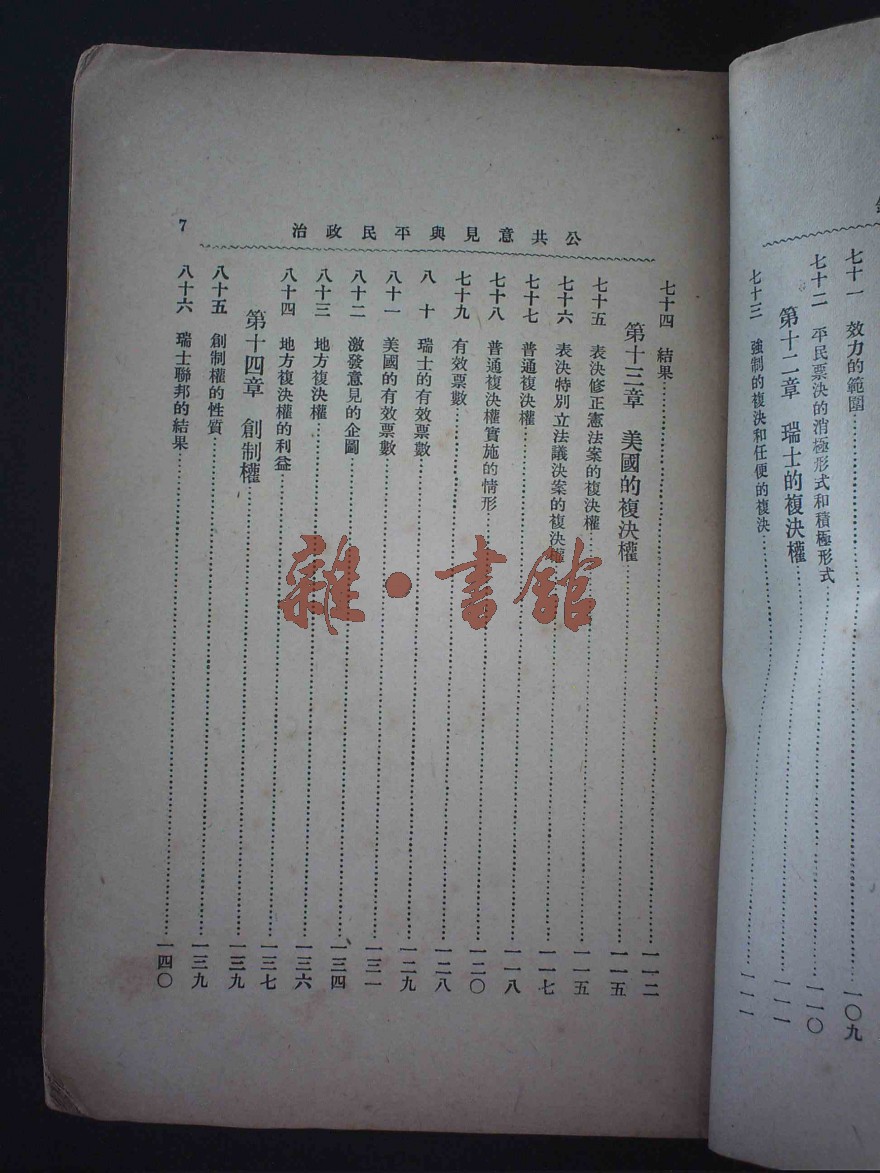 七十一 效力的範圍……一〇九
七十二 平民票決的消極形式和積極形式……一一〇
第十二章 瑞士的複決權……一一一
七十三 強制的複決和任便的複決……一一一
公共意見與平民政治
7
七十四 結果……一一二
第十三章 美國的複決權……一一五
七十五 表決修正憲法案的複決權……一一五
七十六 表決特別立法議決案的複決權……一一七
七十七 普通複決權……一一八
七十八 普通複決權實施的情形……一二〇
七十九 有效票數……一二八
八十 瑞士的有效票數……一二九
八十一 美國的有效票數……一三一
八十二 激發意見的企圖……一三四
八十三 地方複決權……一三六
八十四 地方複決權的利益……一三七
第十四章 創制權……一三九
八十五 創制權的性質……一三九
八十六 瑞士聯邦的結果……一四〇
雜·書館